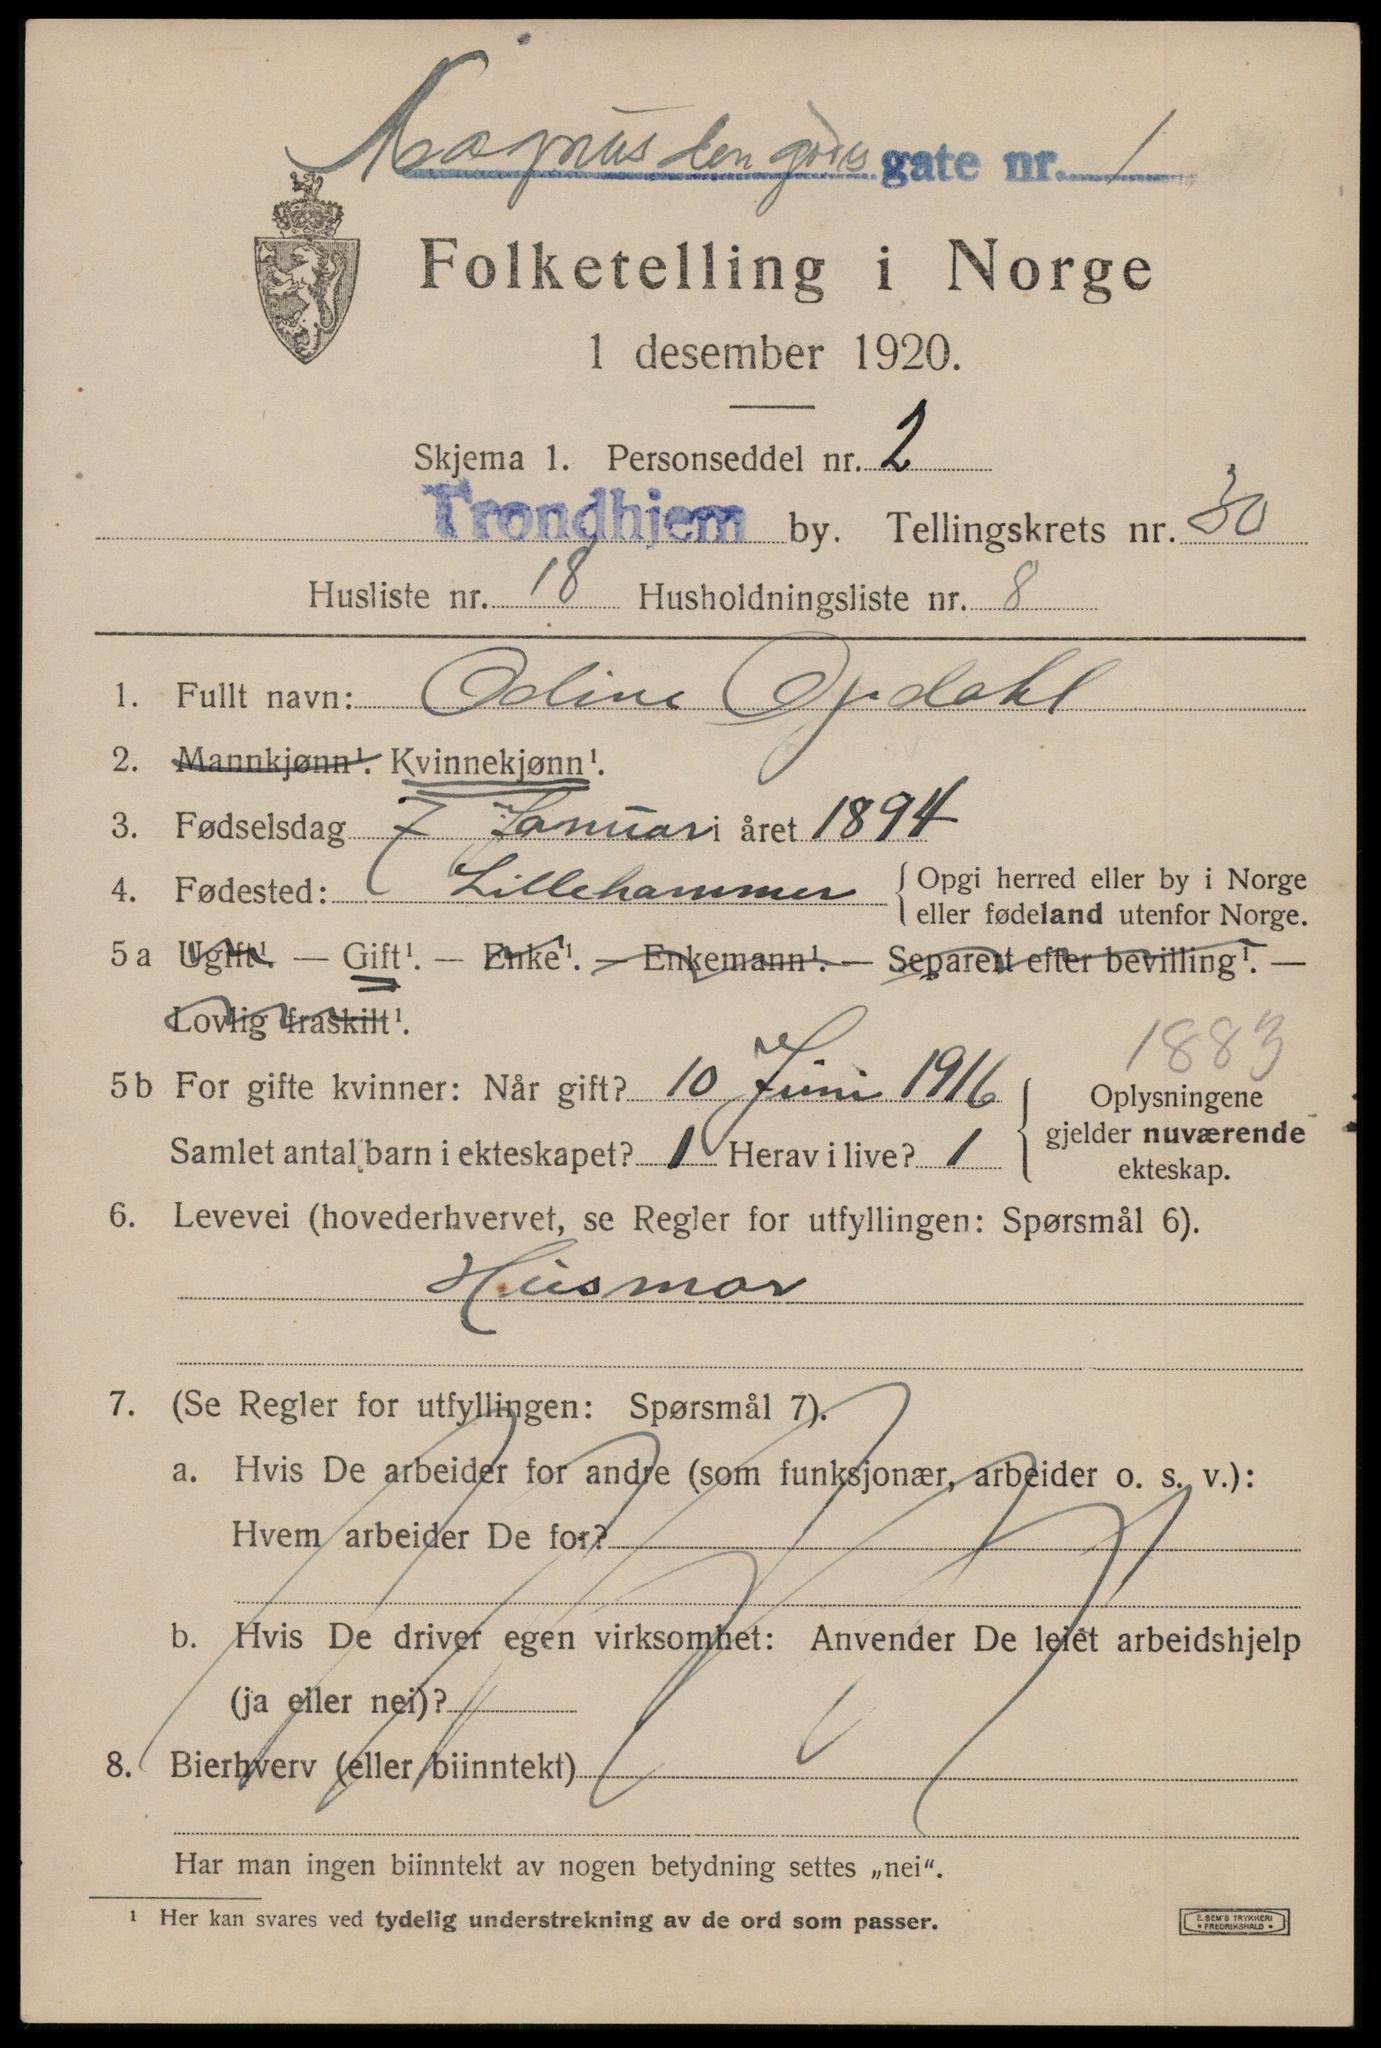 Magnus den godes gate nr. 1
Folketelling i Norge
1 desember 1920.
Skjema 1. Personseddel nr. 2
Trondhjem by. Tellingskrets nr. 30
Husliste nr. 18 Husholdningsliste nr. 8
1. Fullt navn: Odine Opdahl
2. Mannkjønn¹. Kvinnekjønn¹.
3. Fødselsdag 7 Januar i året 1894
4. Fødested: Lillehammer { Opgi herred eller by i Norge
eller fødeland utenfor Norge.
5 a Ugift¹. — Gift¹. — Enke¹. — Enkemann¹. — Separert efter bevilling¹. —
Lovlig fraskilt¹.
1883
5 b For gifte kvinner: Når gift? 10 Juni 1916
Samlet antal barn i ekteskapet? 1 Herav i live? 1
Oplysningene
gjelder nuværende
ekteskap.
6. Levevei (hovederhvervet, se Regler for utfyllingen: Spørsmål 6).
Husmor
7. (Se Regler for utfyllingen: Spørsmål 7).
a. Hvis De arbeider for andre (som funksjonær, arbeider o. s. v.):
Hvem arbeider De for?
b. Hvis De driver egen virksomhet: Anvender De leiet arbeidshjelp
(ja eller nei)?
8. Bierhverv (eller biinntekt)
Har man ingen biinntekt av nogen betydning settes „nei“.
¹ Her kan svares ved tydelig understrekning av de ord som passer.
E. SEM'S TRYKKERI
FREDRIKSHALD